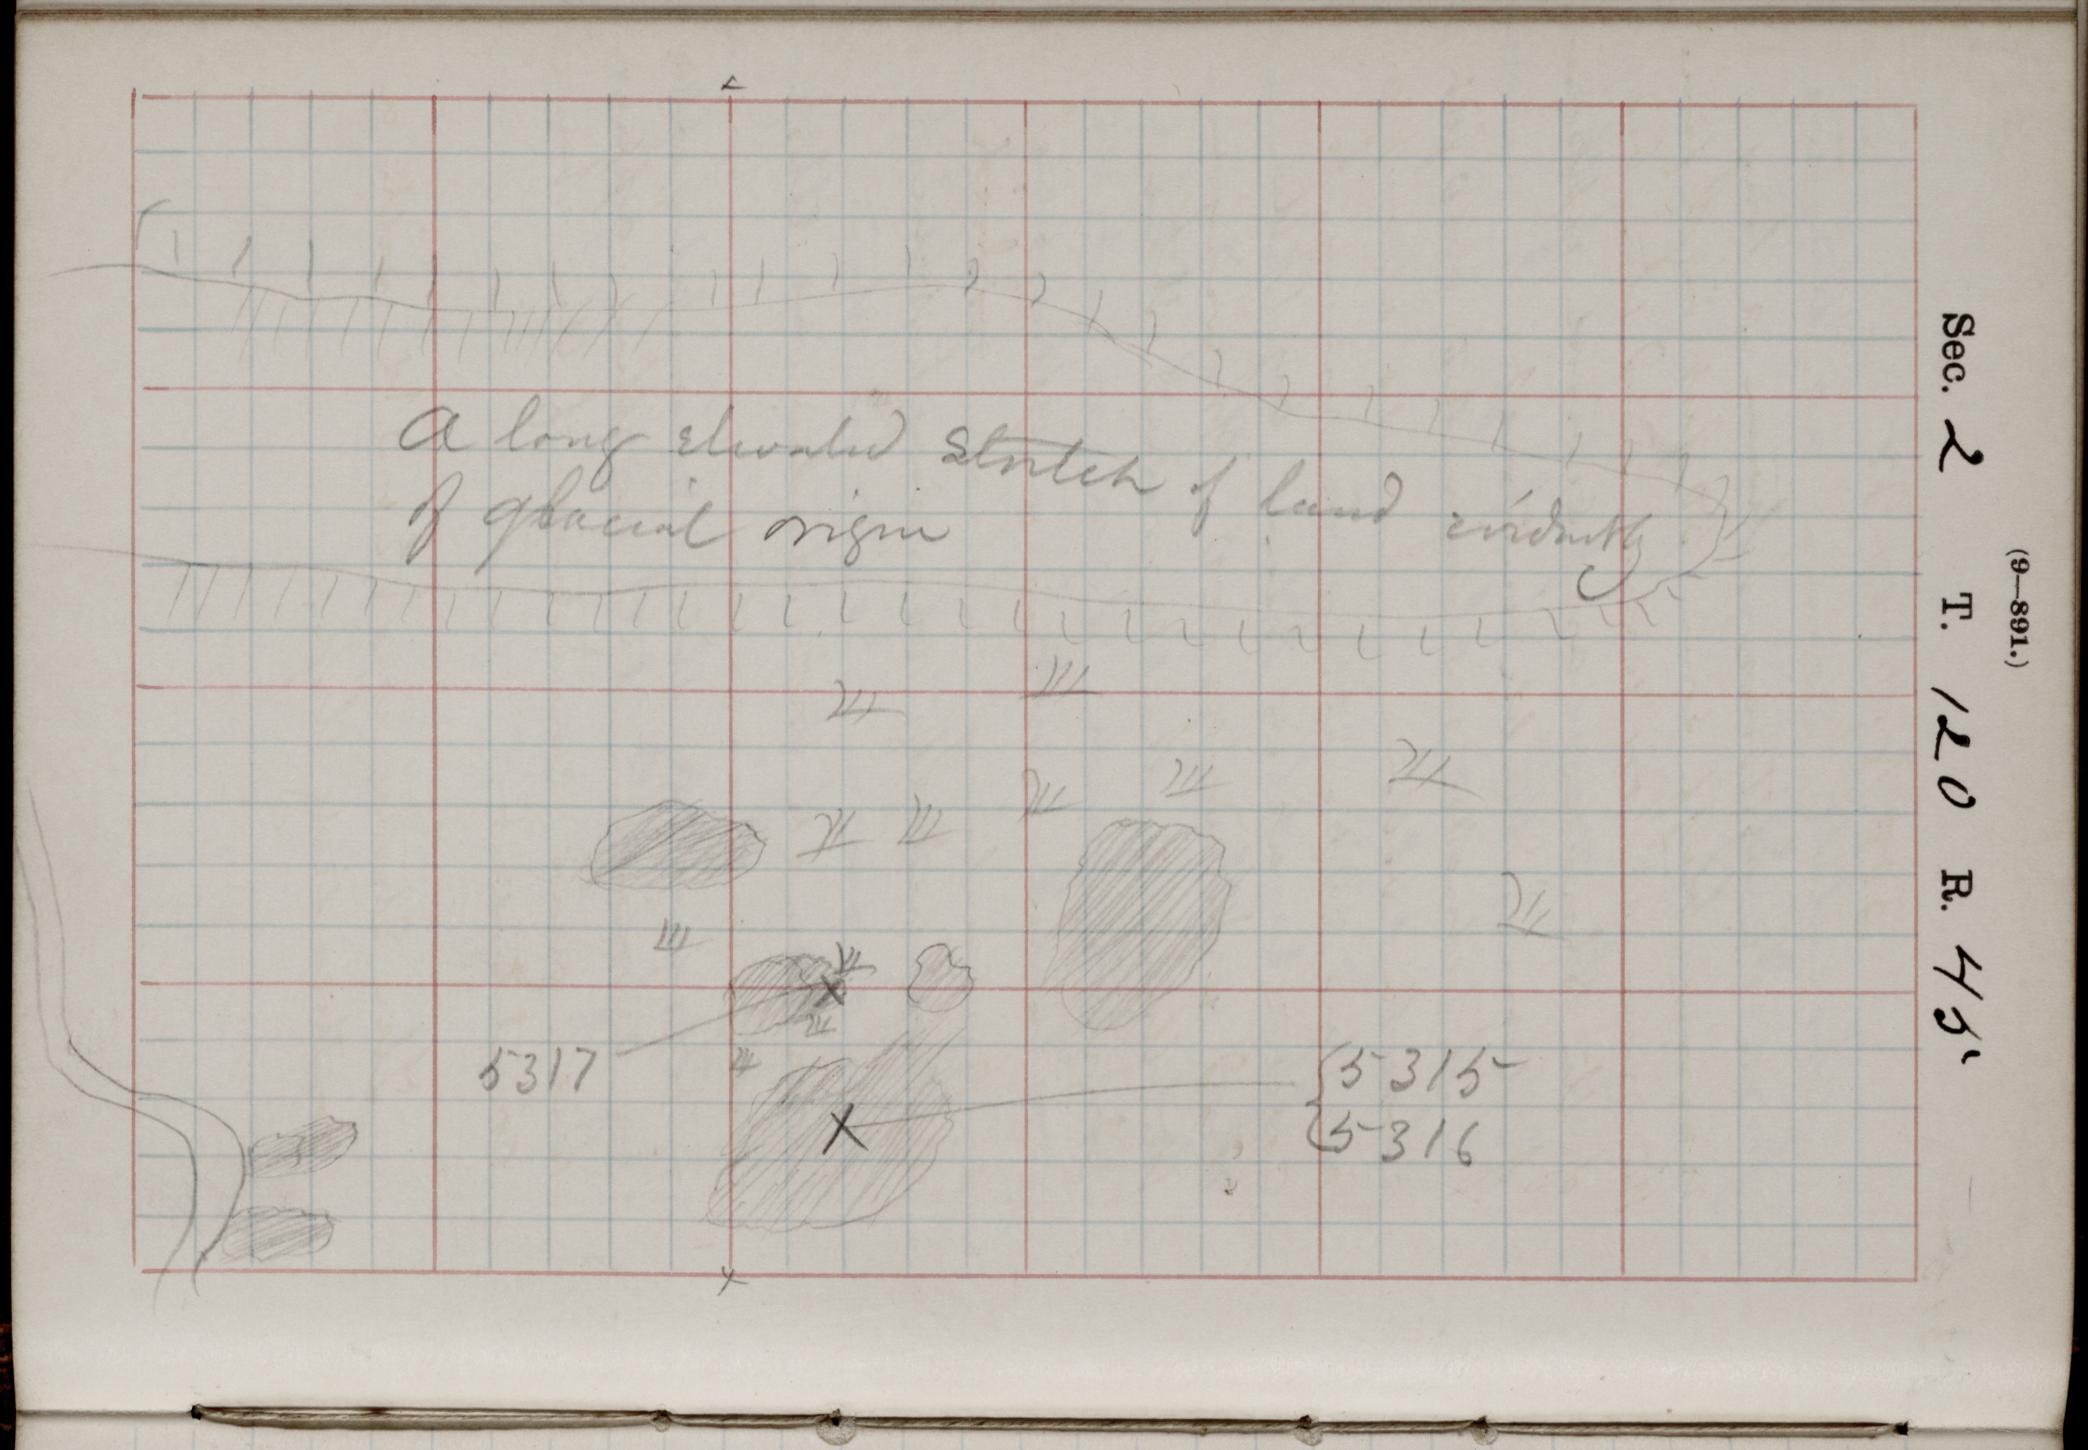 (9—891.)
Sec. 2 T. 120 R. 45
A long elevated stretch of land evidently
of glacial origin
5317
5315
5316